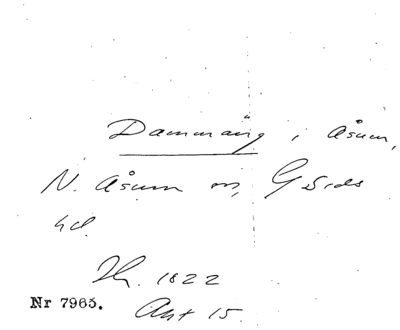 Dammäng i Åsum,
N. Åsum sn, Gärds
hd.
Sk. 1822
Nr 7965.
Akt 15.